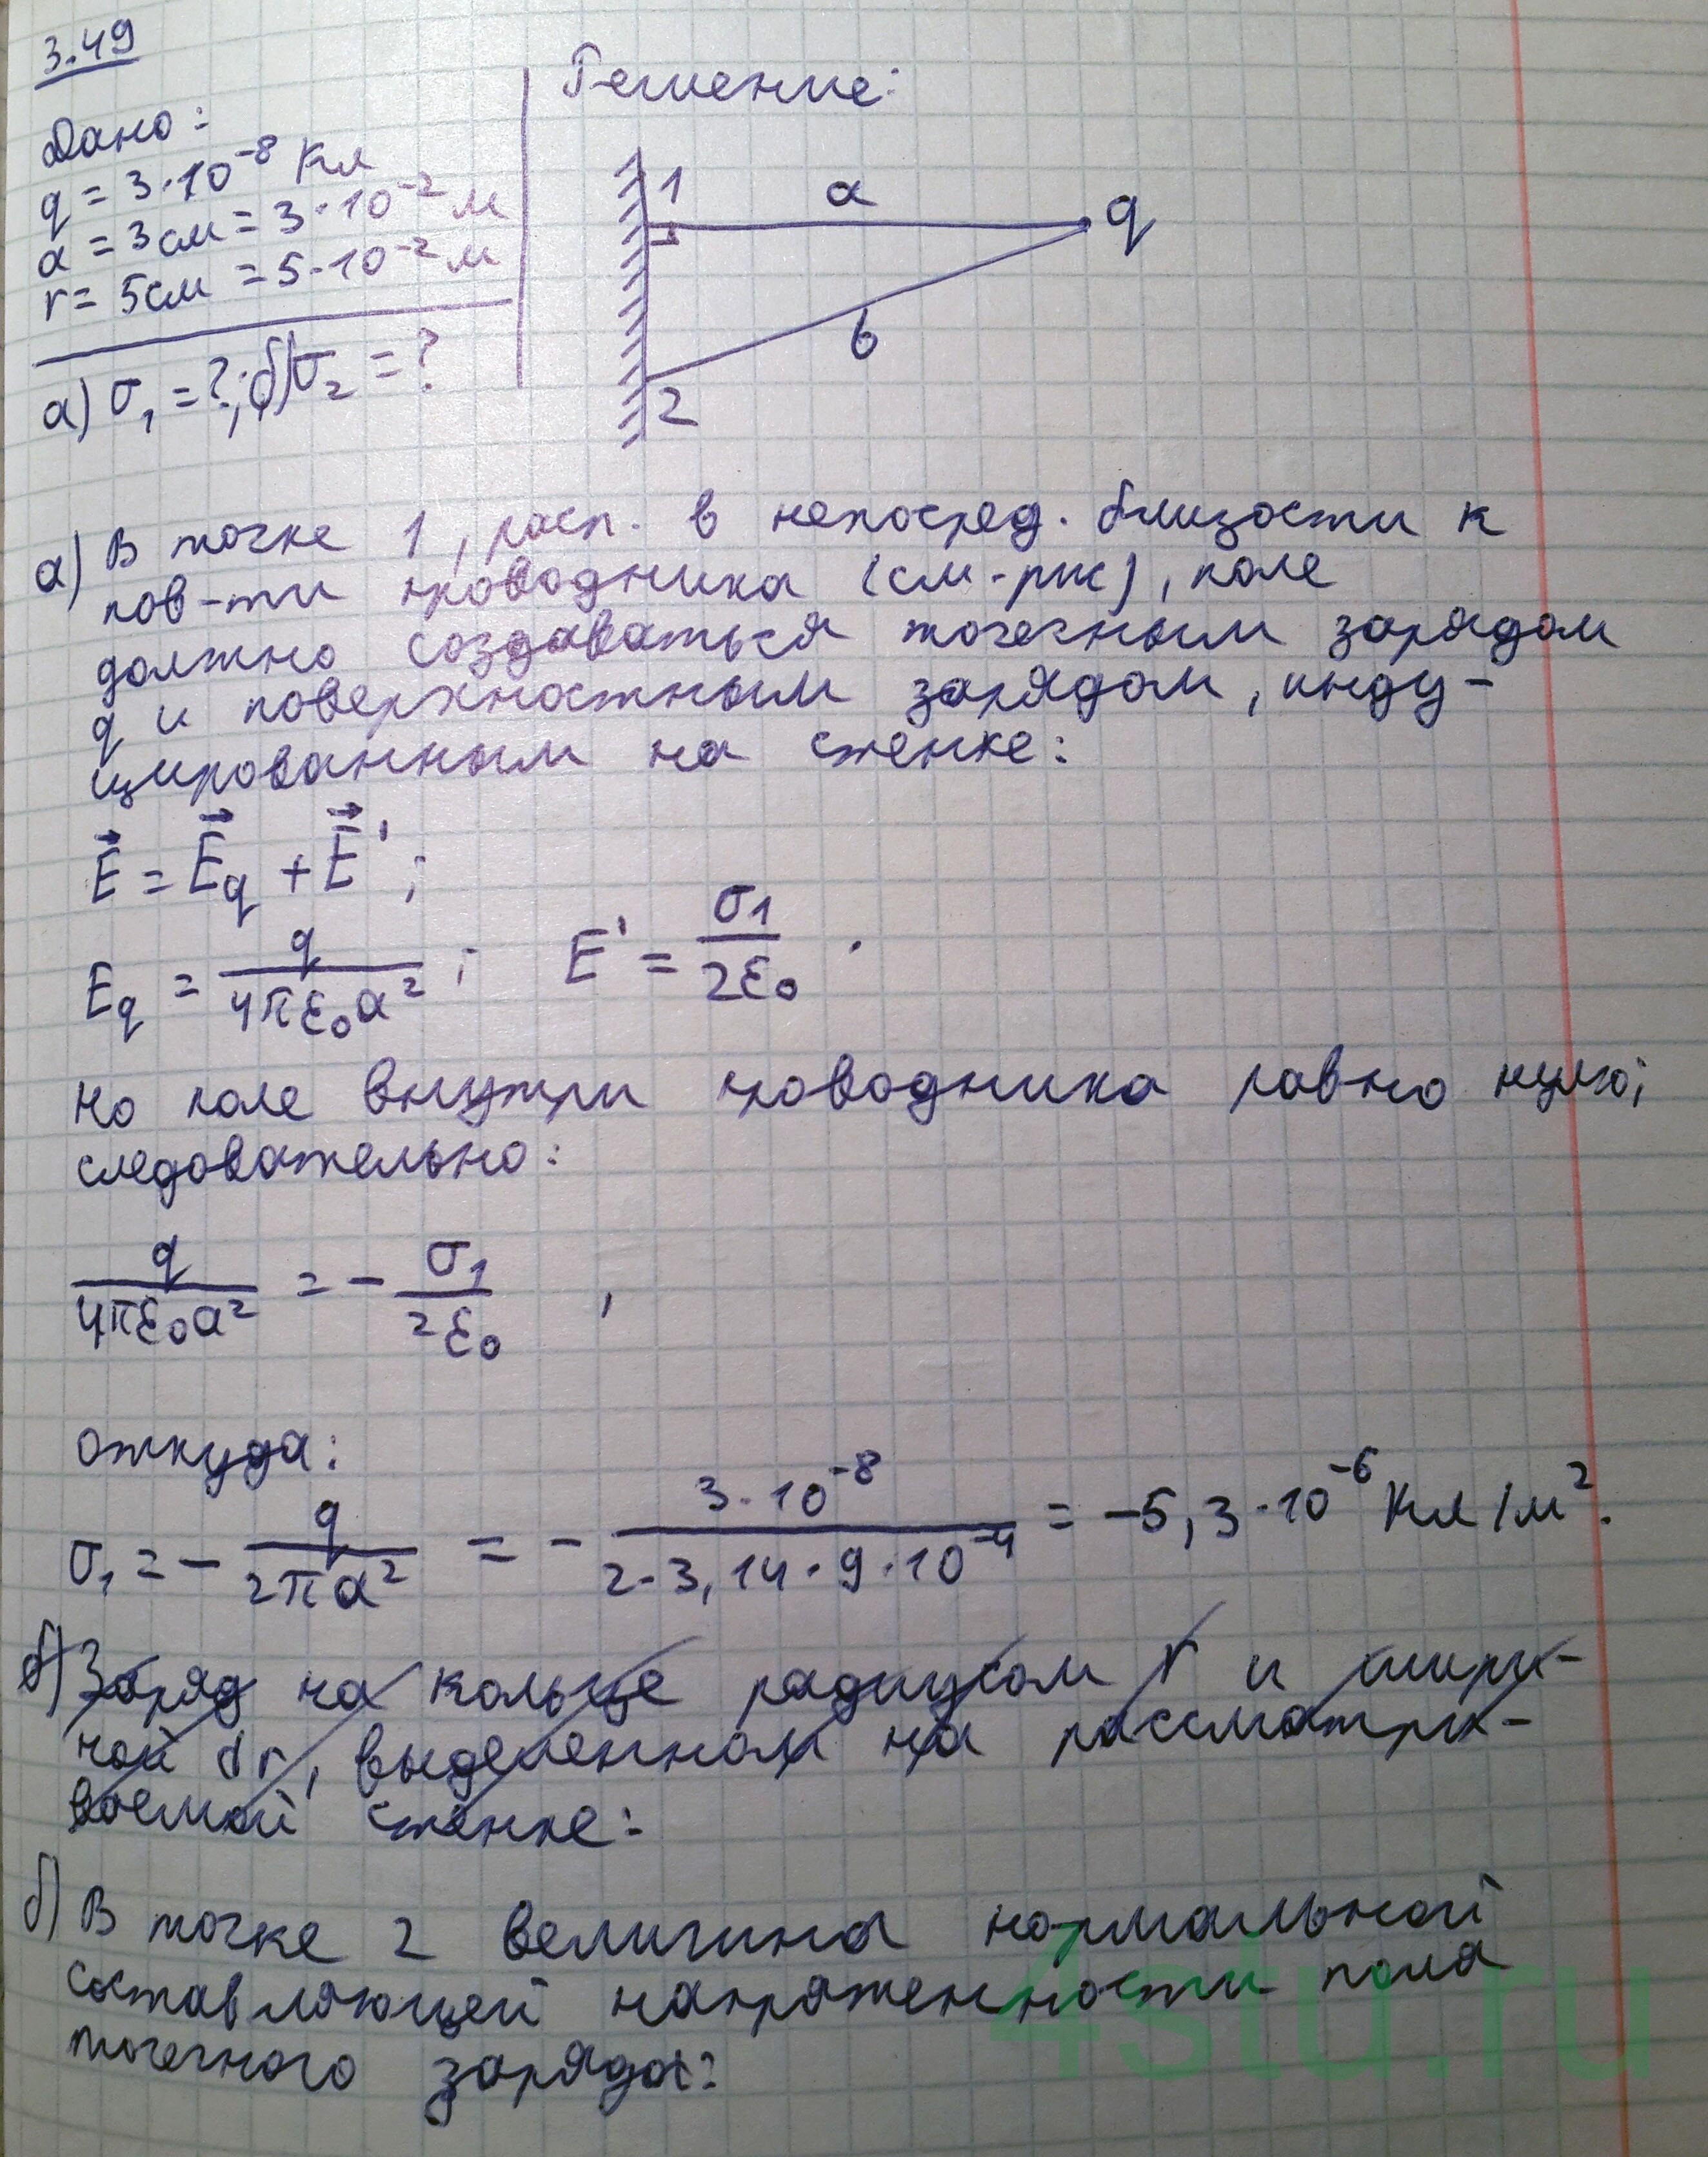 3.49
Дано:
q = 3·10⁻⁸ Кл
a = 3см = 3·10⁻² м
r = 5см = 5·10⁻² м
а) σ₁ = ?; б) σ₂ = ?
Решение:
1
a
q
b
2
а) В точке 1, расп. в непосред. близости к
пов-ти проводника (см. рис), поле
должно создаваться точечным зарядом
q и поверхностным зарядом, инду-
цированным на стенке:
E⃗ = E⃗q + E⃗';
Eq = q/(4πε₀a²); E' = σ₁/(2ε₀).
но поле внутри проводника равно нулю;
следовательно:
q/(4πε₀a²) = -σ₁/(2ε₀),
откуда:
σ₁ = -q/(2πa²) = -(3·10⁻⁸)/(2·3,14·9·10⁻⁴) = -5,3·10⁻⁶ Кл/м².
б) Заряд на кольце радиусом r и шири-
ной dr, выделенном на рассматри-
ваемой стенке:
б) В точке 2 величина нормальной
составляющей напряженности поля
точечного заряда:
4stu.ru